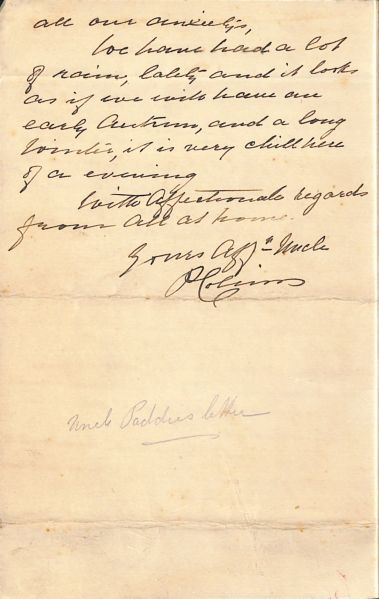 all our anxiety,
We have had a lot
of rain, lately and it looks
as if we will have an
early Autumn, and a long
Winter, it is very chill here
of a evening
With Affectionate regards
from all at home.
Yours Aff. Uncle
P Collins
Uncle Paddies letter